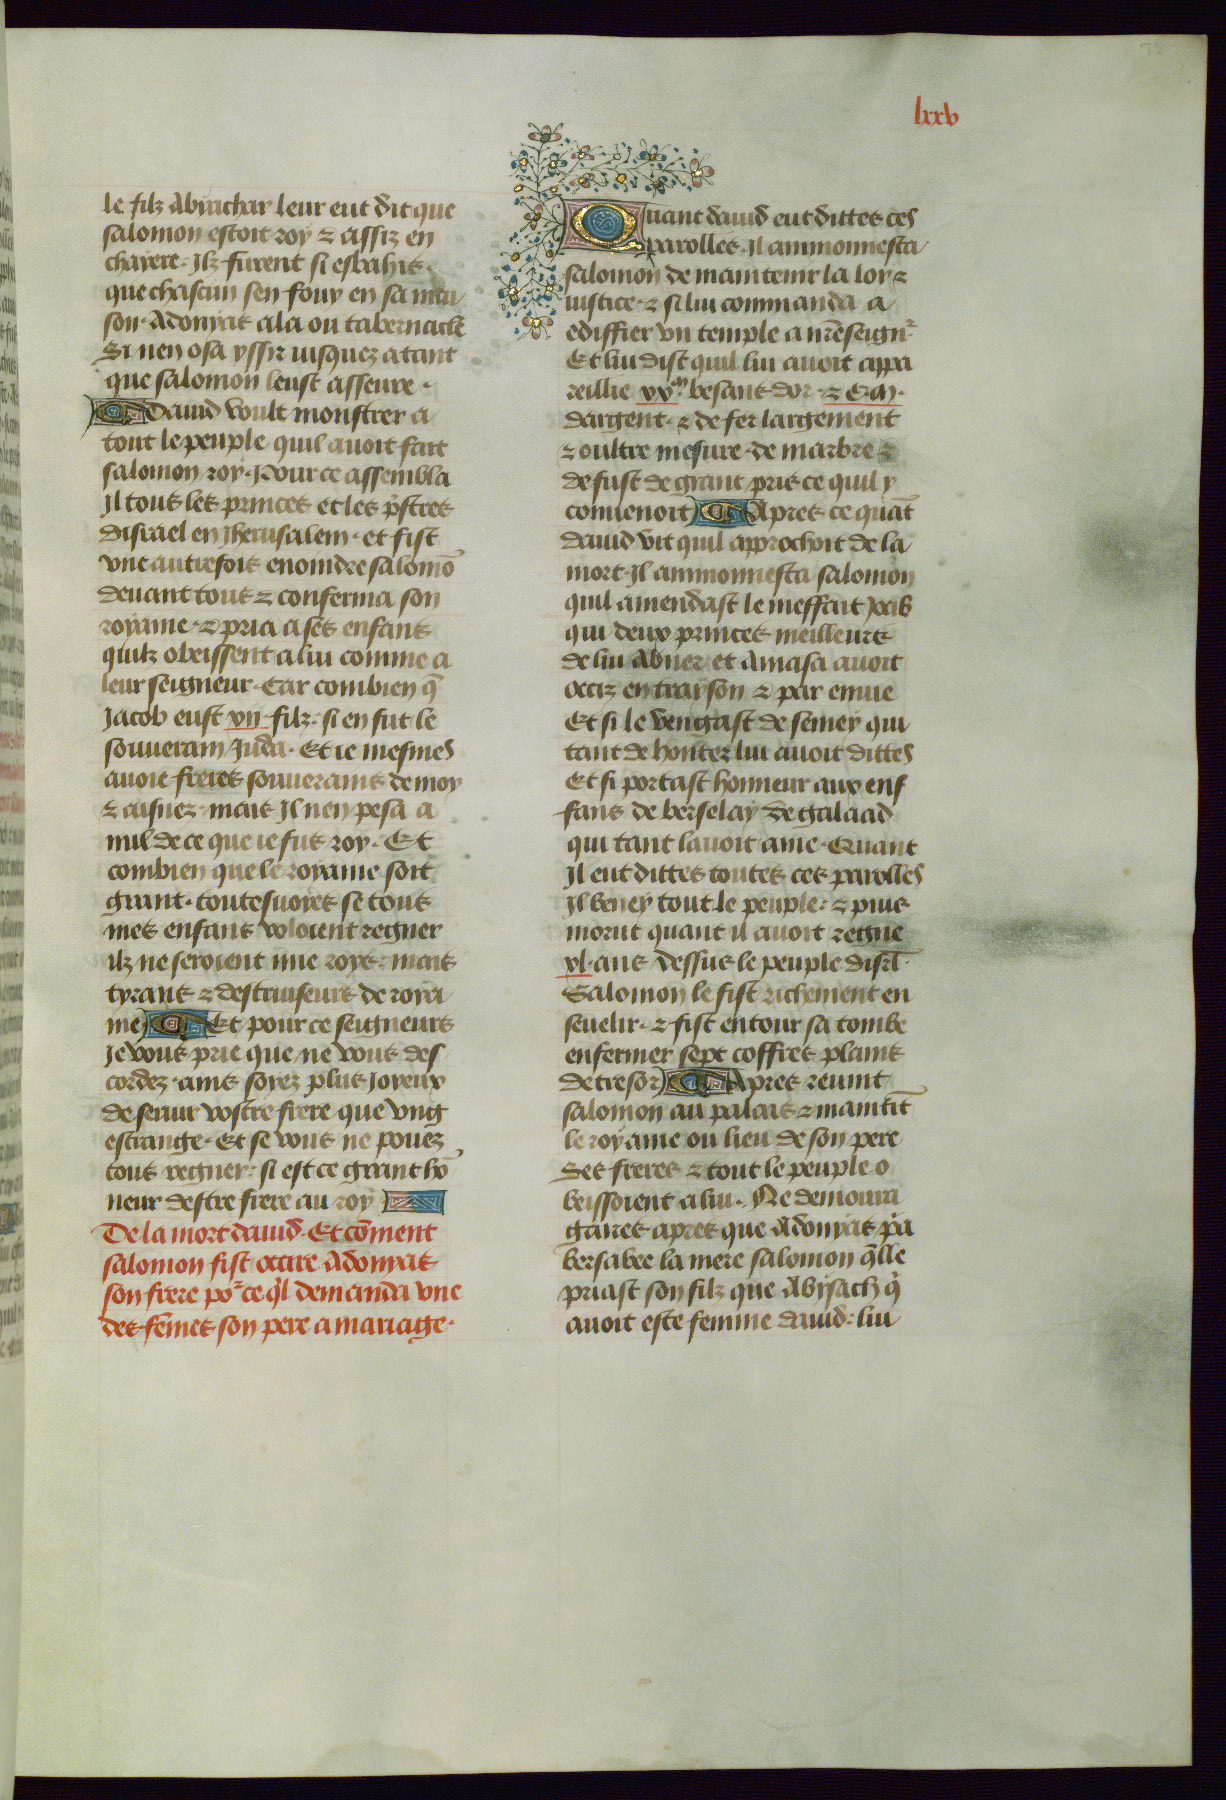 lxxv
le filz Abyachar leur eut dit que
salomon estoit roy & assiz en
chayere. Ilz furent si esbahis
que chascun sen fouy en sa mai
son. Adonyas ala ou tabernacle
Si nen osa yssir iusquez a tant
que salomon leust asseure.
Dauid voult monstrer a
tout le peuple quil auoit fait
salomon roy. Pour ce assembla
Il tous les princes et les pstres
disrael en Jherusalem. et fist
vne autrefois enoindre salomō
deuant tout & conferma son
royame. & pria a ses enfans
quilz obeissent a lui comme a
leur seigneur. Car combien q̄
Jacob eust xii filz. si en fut le
souuerain Juda. Et ie mesmes
auoie freres souuerains de moy
& aisnez. mais Il nen pesa a
nul de ce que ie fus roy. Et
combien que le royame soit
grant. toutesuoyes se tous
mes enfans voloient regner
ilz ne seroient mie roys. mais
tyrans & destruiseurs de roya
me Et pour ce seigneurs
Je vous prie que ne vous des
cordez. ains soyez plus Joyeux
de seruir vostre frere que vng
estrange. Et se vous ne pouez
tous regner. si est ce grant hō
neur destre frere au roy
De la mort dauid. Et cōment
salomon fist occire Adonyas
son frere por ce ql demanda vne
des fēmes son pere a mariage.
Quant dauid eut dittes ces
parolles. Il ammonnesta
salomon de maintenir la loy &
iustice. & si lui commanda a
ediffier vn temple a nr̄e seignr
Et lui dist quil lui auoit appa
reillie xxm besans dor. & C m.
dargent. & de fer largement
& oultre mesure. de marbre &
de fust de grant pris ce quil y
conuenoit Apres ce quāt
dauid vit quil approchoit de la
mort. Il ammonnesta salomon
quil amendast le meffait Joab
qui deux princes meilleurs
de lui Abner et Amasa auoit
occiz en trayson & par enuie
Et si le vengast de semey qui
tant de hontez lui auoit dittes
Et si portast honneur aux enf
fans de berselay de galaad
qui tant lauoit ame. Quant
Il eut dittes toutes ces parolles
Il beney tout le peuple. & puis
morut quant il auoit regne
xl. ans dessus le peuple disrl̄.
Salomon le fist richement en
seuelir. & fist entour sa tombe
enfermer sept coffres plains
de tresor Apres reuint
salomon au palais & maintīt
le royame ou lieu de son pere
Ses freres & tout le peuple o
beissoient a lui. Ne demoura
gaires apres que Adonyas pa
bersabee la mere salomon qlle
priast son filz que Abysach q
auoit este femme dauid. lui